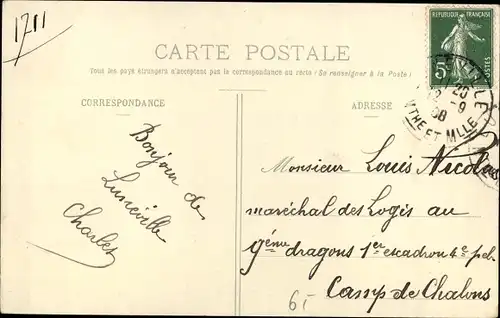 1711
CARTE POSTALE
Tous les pays étrangers n'acceptent pas la correspondance au recto (Se renseigner à la Poste)
CORRESPONDANCE
ADRESSE
RÉPUBLIQUE FRANÇAISE
5c
POSTES
20
-9
08
MTHE ET MLLE
Bonjour de
Lunéville
Charles
Monsieur Louis Nicolas
maréchal des Logis au
9ème dragons 1er escadron 4e pel.
Camp de Chalons
6,-